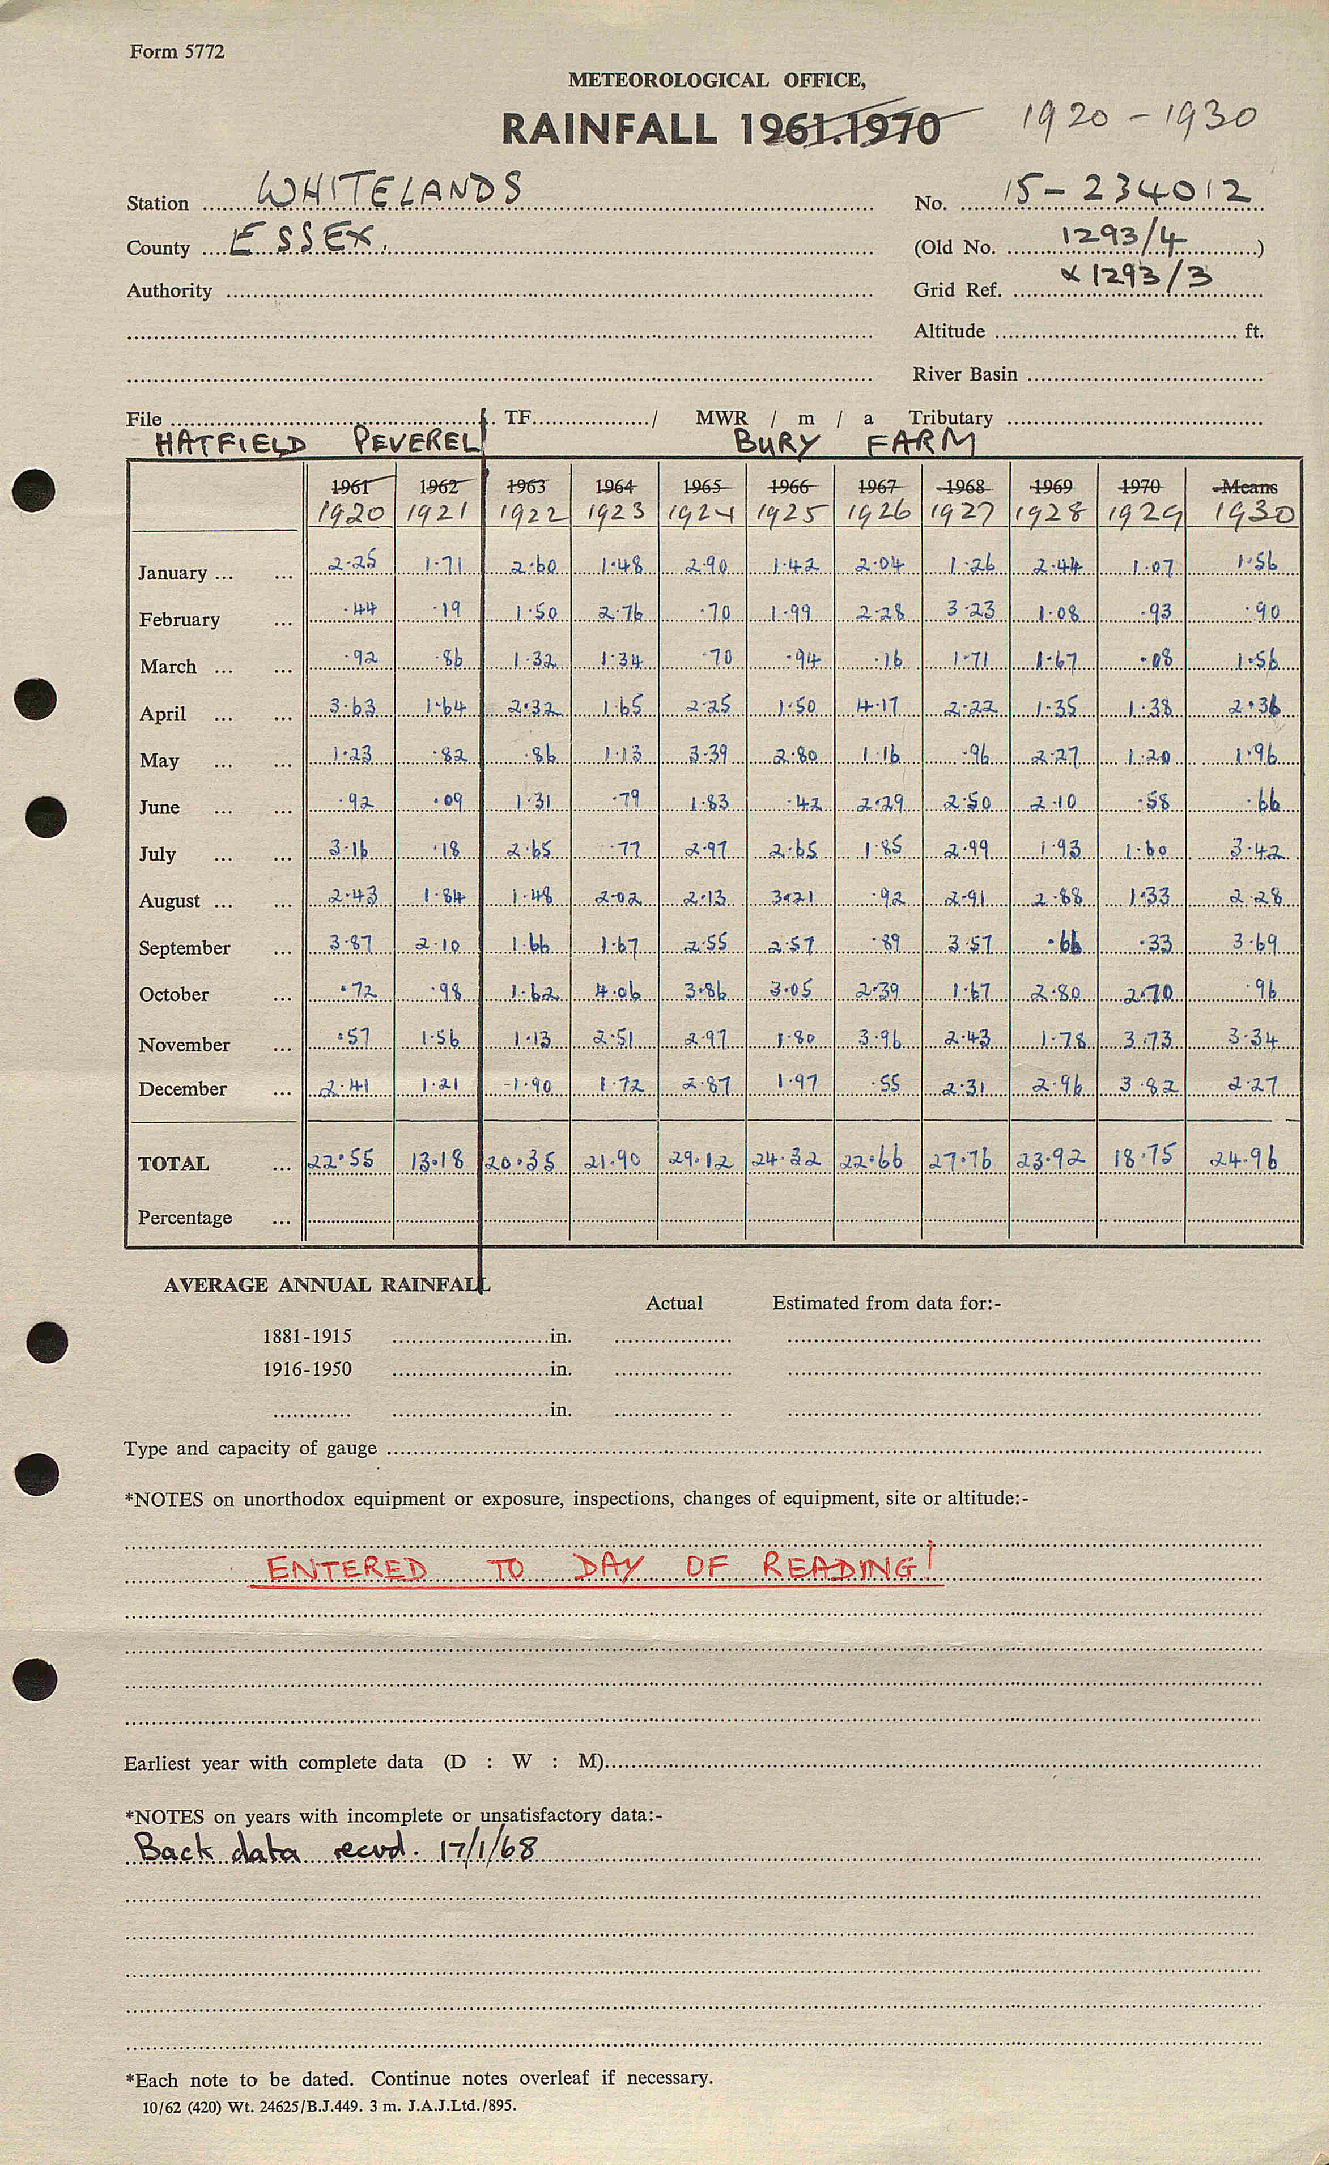 Form 5772
METEOROLOGICAL OFFICE,
RAINFALL 1961-1970 1920 - 1930
Station WHITELANDS No. 15-234012
County ESSEX. (Old No. 1293/4)
Authority Grid Ref. & 1293/3
Altitude ft.
River Basin
File TF / MWR / m / a Tributary
HATFIELD PEVEREL BURY FARM
1961 1962 1963 1964 1965 1966 1967 1968 1969 1970 Means
1920 1921 1922 1923 1924 1925 1926 1927 1928 1929 1930
January ... ... 2.25 1.71 2.60 1.48 2.90 1.42 2.04 1.26 2.44 1.07 1.56
February ... .44 .19 1.50 2.76 .70 1.99 2.28 3.23 1.08 .93 .90
March ... ... .92 .86 1.32 1.34 .70 .94 .16 1.71 1.67 .08 1.56
April ... ... 3.63 1.64 2.32 1.65 2.25 1.50 4.17 2.22 1.35 1.38 2.36
May ... ... 1.23 .82 .86 1.13 3.39 2.80 1.16 .96 2.27 1.20 1.96
June ... ... .92 .09 1.31 .79 1.83 .42 2.29 2.50 2.10 .58 .66
July ... ... 3.16 .18 2.65 .77 2.97 2.65 1.85 2.99 1.93 1.60 3.42
August ... ... 2.43 1.84 1.48 2.02 2.13 3.21 .92 2.91 2.88 1.33 2.28
September ... 3.87 2.10 1.66 1.67 2.55 2.57 .89 3.57 .66 .33 3.69
October ... .72 .98 1.62 4.06 3.86 3.05 2.39 1.67 2.80 2.70 .96
November ... .57 1.56 1.13 2.51 2.97 1.80 3.96 2.43 1.78 3.73 3.34
December ... 2.41 1.21 1.90 1.72 2.87 1.97 .55 2.31 2.96 3.82 2.27
TOTAL ... 22.55 13.18 20.35 21.90 29.12 24.32 22.66 27.76 23.92 18.75 24.96
Percentage ...
AVERAGE ANNUAL RAINFALL
Actual Estimated from data for:-
1881-1915 in.
1916-1950 in.
in.
Type and capacity of gauge
*NOTES on unorthodox equipment or exposure, inspections, changes of equipment, site or altitude:-
ENTERED TO DAY OF READING!
Earliest year with complete data (D : W : M)
*NOTES on years with incomplete or unsatisfactory data:-
Back data recvd. 17/1/68
*Each note to be dated. Continue notes overleaf if necessary.
10/62 (420) Wt. 24625/B.J.449. 3 m. J.A.J.Ltd./895.